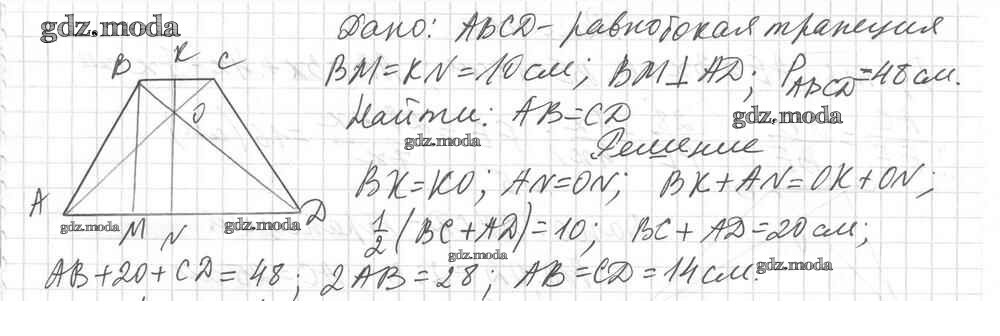 gdz.moda
Дано: ABCD - равнобокая трапеция
BM = KN = 10 см; BM ⊥ AD; P_ABCD = 48 см.
Найти: AB = CD
gdz.moda
gdz.moda
Решение
BK = KO; AN = ON; BK + AN = OK + ON;
1/2 (BC + AD) = 10; BC + AD = 20 см;
gdz.moda
AB + 20 + CD = 48; 2AB = 28; AB = CD = 14 см.
gdz.moda
B K C
O
A D
gdz.moda
gdz.moda
M N